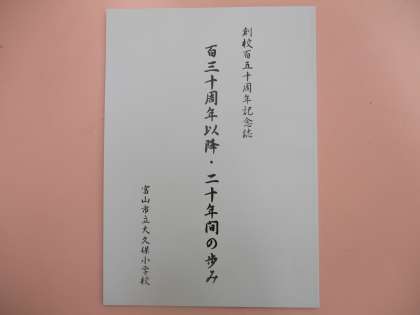 創校百五十周年記念誌
百三十周年以降・二十年間の歩み
富山市立大久保小学校